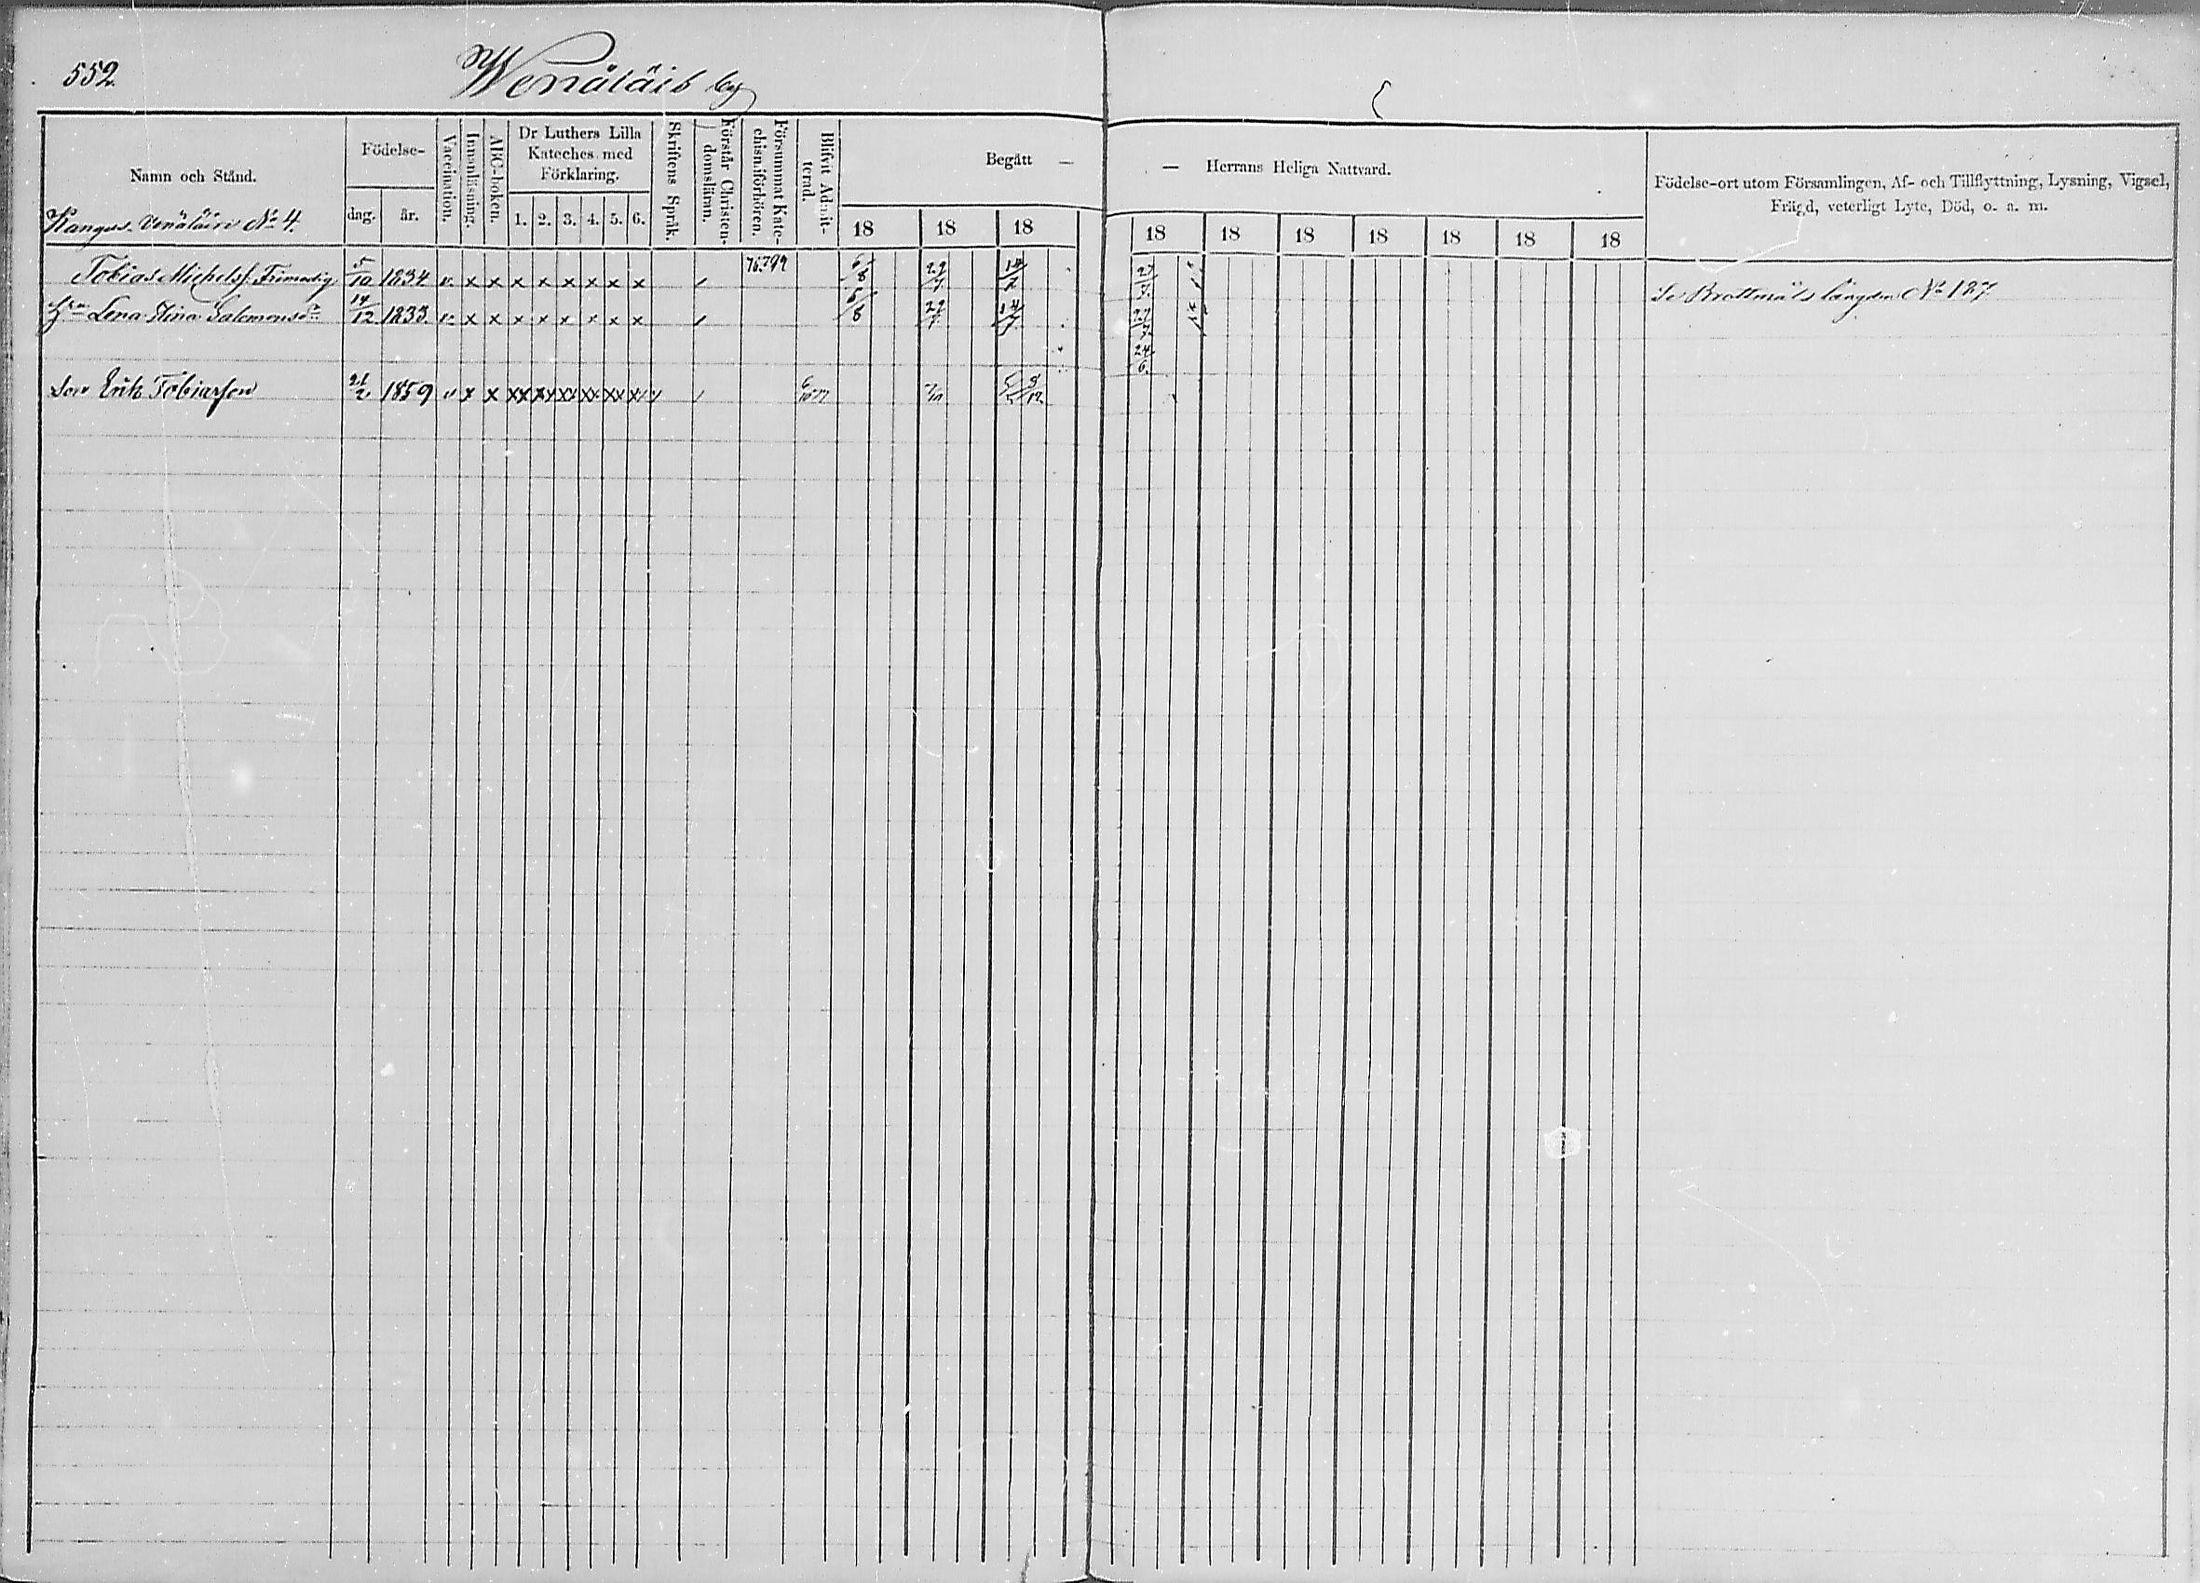 552.
Wenäläis by
Namn och Stånd.
Födelse-
dag. år.
Vaccination.
Innanläsning.
ABC-boken.
Dr Luthers Lilla
Kateches med
Förklaring.
1. 2. 3. 4. 5. 6.
Skriftens Språk.
Förstår Christen-
domsläran.
Försummat Kate-
chismiförhören.
Blifvit Admit-
terad.
Begått —
18 18 18
— Herrans Heliga Nattvard.
18 18 18 18 18 18 18
Födelse-ort utom Församlingen, Af- och Tillflyttning, Lysning, Vigsel,
Frägd, veterligt Lyte, Död, o. a. m.
Kangus Venäläin No 4.
Tobias Michelss. 5/10 1834 v. x x x x x x x x / 6/8 29/7 27/7 Se Brottmåls längden No 187
Hu Lena Stina Salomonsdr 14/12 1833. v. x x x x x x x x / 6/8 29/7 14/7 27/7
24/6.
Son Erik Tobiasson 21/2 1859 v x x xx xx xx xx xx xx /